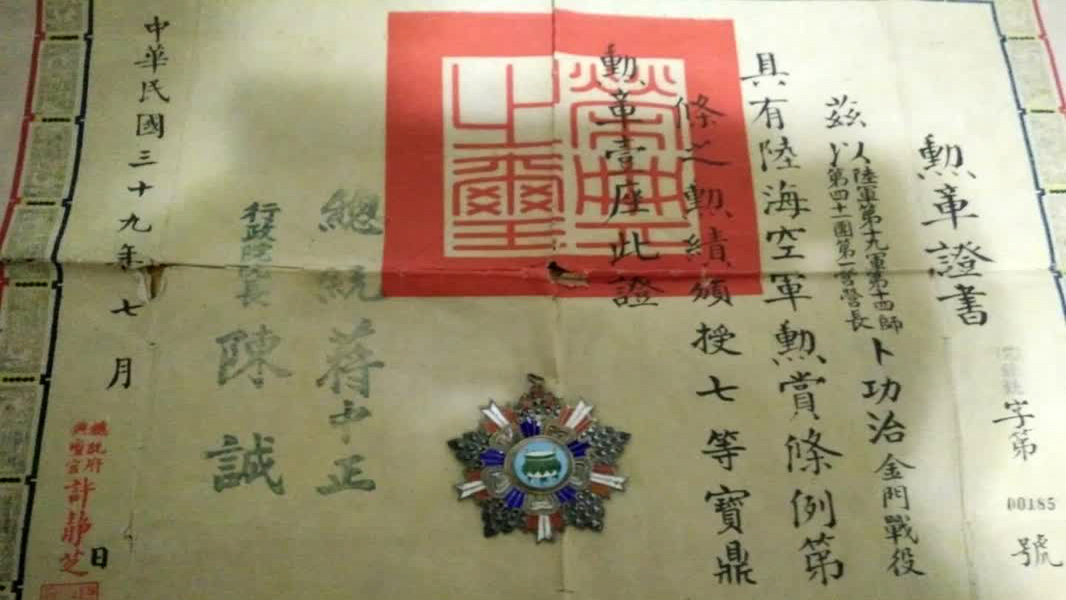 字第00185號
勳章證書
茲以陸軍第十九軍第十四師第四十一團第一營營長卜功治金門戰役
具有陸海空軍勳賞條例第
條之勳績頒授七等寶鼎
勳章壹座此證
榮典之璽
總統蔣中正
行政院長陳誠
中華民國三十九年七月日
總統府典璽官許靜芝